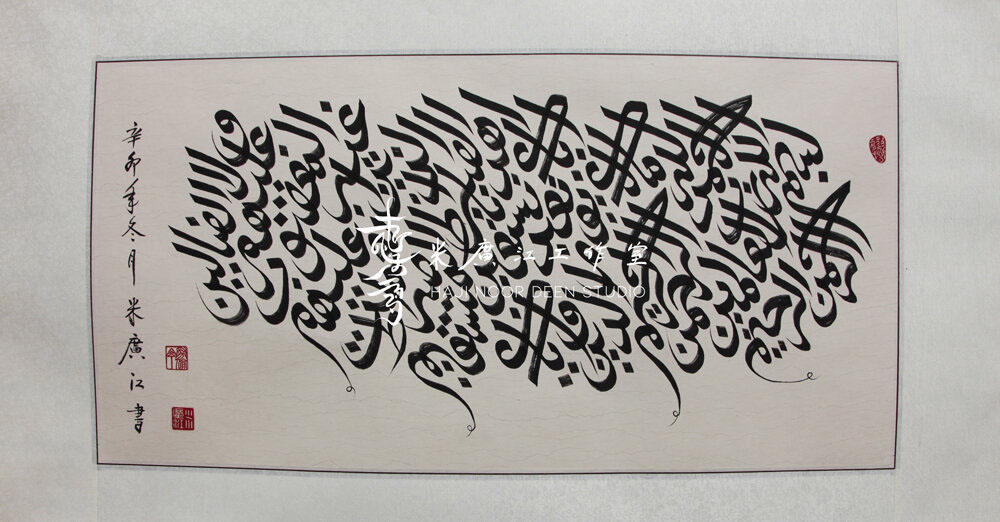 بسم الله الرحمن الرحيم
الحمد لله رب العالمين
الرحمن الرحيم
مالك يوم الدين
إياك نعبد وإياك نستعين
اهدنا الصراط المستقيم
صراط الذين أنعمت عليهم
غير المغضوب عليهم
ولا الضالين
辛卯年冬月米廣江書
米廣江工作室
HAJI NOOR DEEN STUDIO